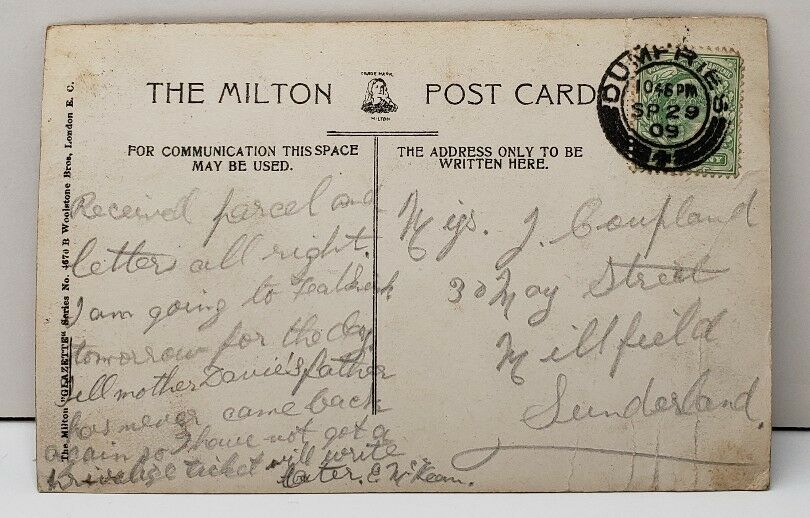 THE MILTON POST CARD
TRADE MARK
MILTON
DUMFRIES
1045 PM
SP 29
09
FOR COMMUNICATION THIS SPACE
MAY BE USED.
THE ADDRESS ONLY TO BE
WRITTEN HERE.
The Milton "GLAZETTE" Series No. 4670 B Woolstone Bros, London E. C.
Received parcel and
letter all right.
I am going to
tomorrow for the day.
Tell mother Davie's father
has never came back
again so I have not got a
Privalige ticket will write
later. E McKean.
Miss J. Coupland
30 May Street
Millfield
Sunderland.